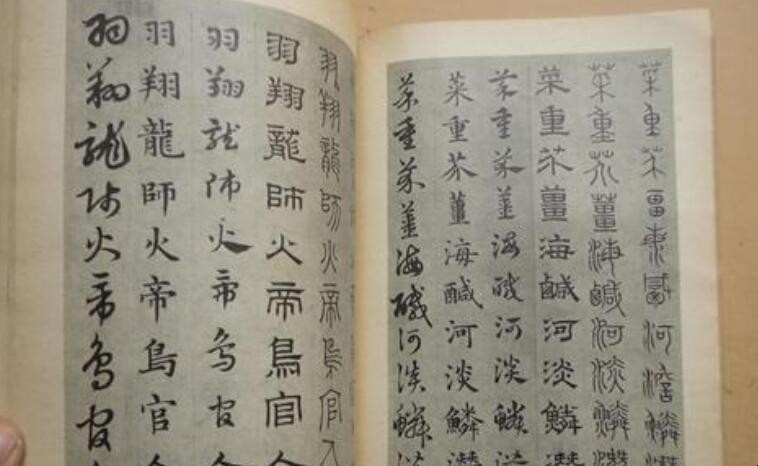 菜重芥薑海鹹河淡鱗潛
菜重芥薑海鹹河淡鱗潛
菜重芥薑海鹹河淡鱗潛
菜重芥薑海鹹河淡鱗潛
菜重芥薑海鹹河淡鱗潛
菜重芥薑海鹹河淡鱗潛
羽翔龍師火帝鳥官人
羽翔龍師火帝鳥官人
羽翔龍師火帝鳥官人
羽翔龍師火帝鳥官人
羽翔龍師火帝鳥官人